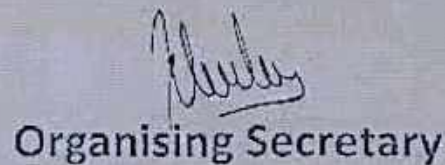 Organising Secretary